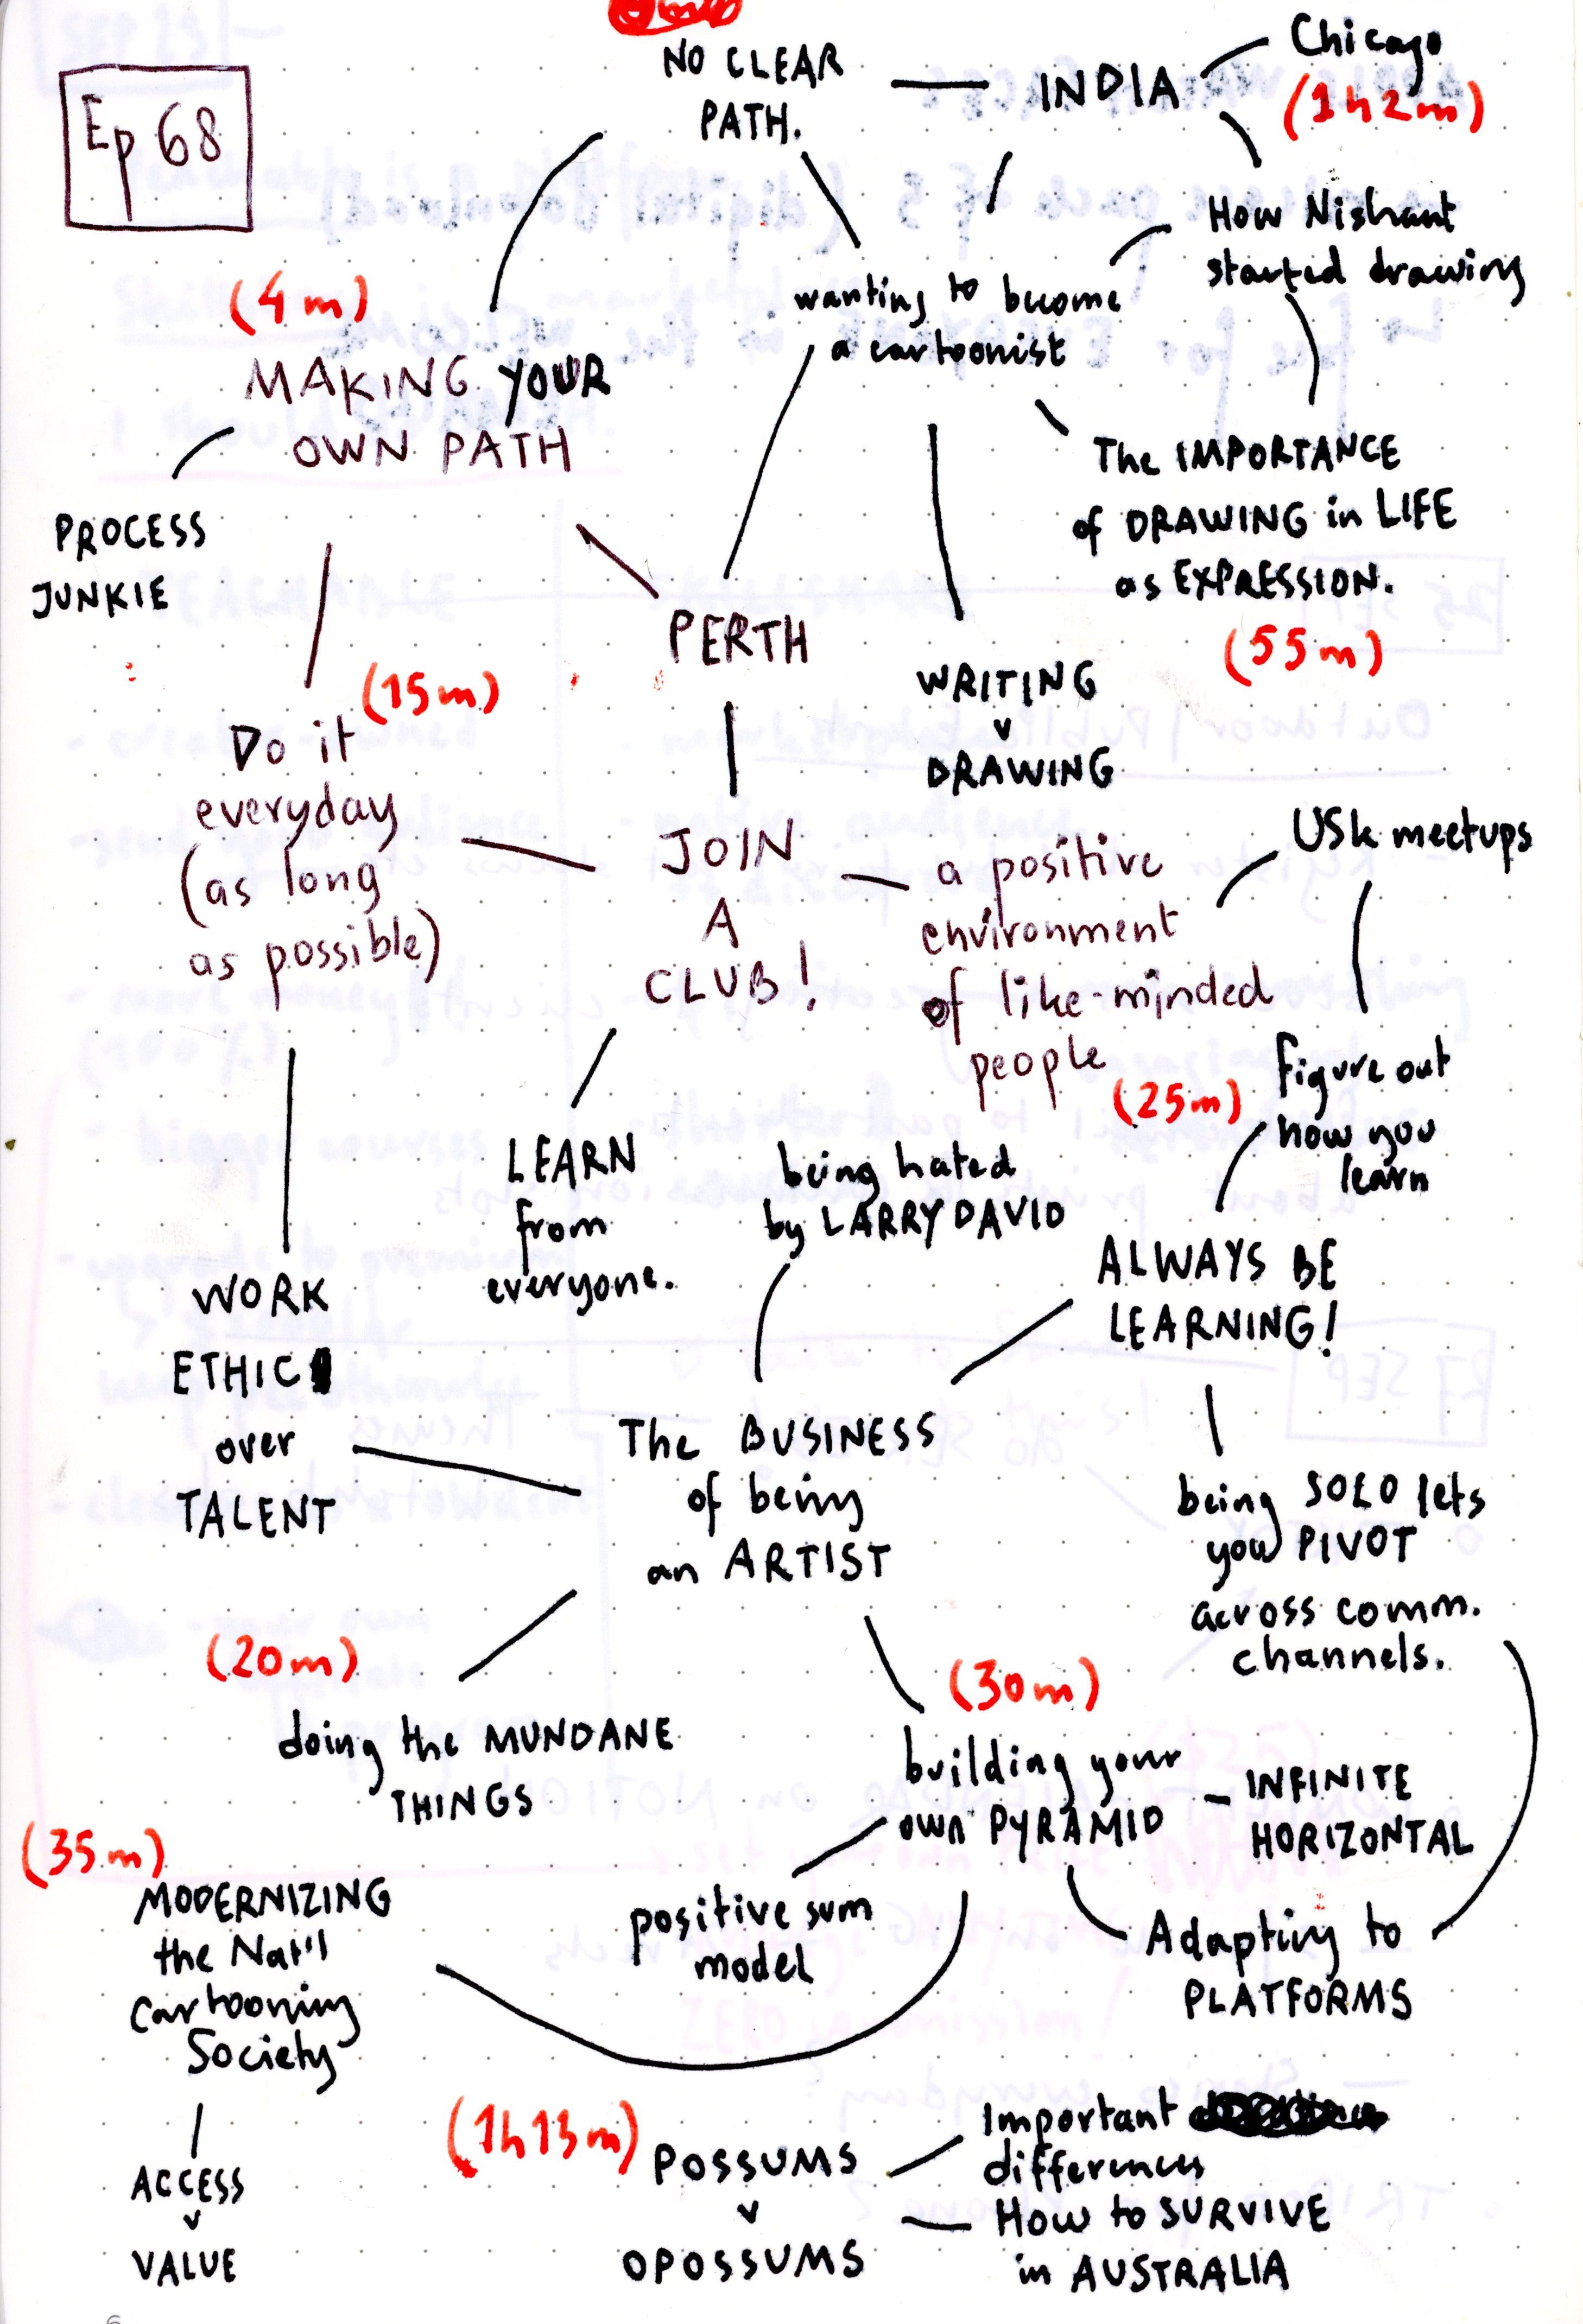 Ep 68
NO CLEAR
PATH.
INDIA
Chicago
(1h2m)
How Nishant
started drawing
wanting to become
a cartoonist
(4m)
MAKING YOUR
OWN PATH
PROCESS
JUNKIE
The IMPORTANCE
of DRAWING in LIFE
as EXPRESSION.
(55m)
PERTH
WRITING
v
DRAWING
(15m)
Do it
everyday
(as long
as possible)
JOIN
A
CLUB!
a positive
environment
of like-minded
people
USk meetups
figure out
how you
learn
(25m)
LEARN
from
everyone.
being hated
by LARRY DAVID
ALWAYS BE
LEARNING!
WORK
ETHIC
over
TALENT
The BUSINESS
of being
an ARTIST
being SOLO lets
you PIVOT
across comm.
channels.
(20m)
doing the MUNDANE
THINGS
(30m)
building your
own PYRAMID
INFINITE
HORIZONTAL
(35m)
MODERNIZING
the Nat'l
Cartooning
Society
positive sum
model
Adapting to
PLATFORMS
ACCESS
v
VALUE
(1h13m)
POSSUMS
v
OPOSSUMS
Important
differences
How to SURVIVE
in AUSTRALIA